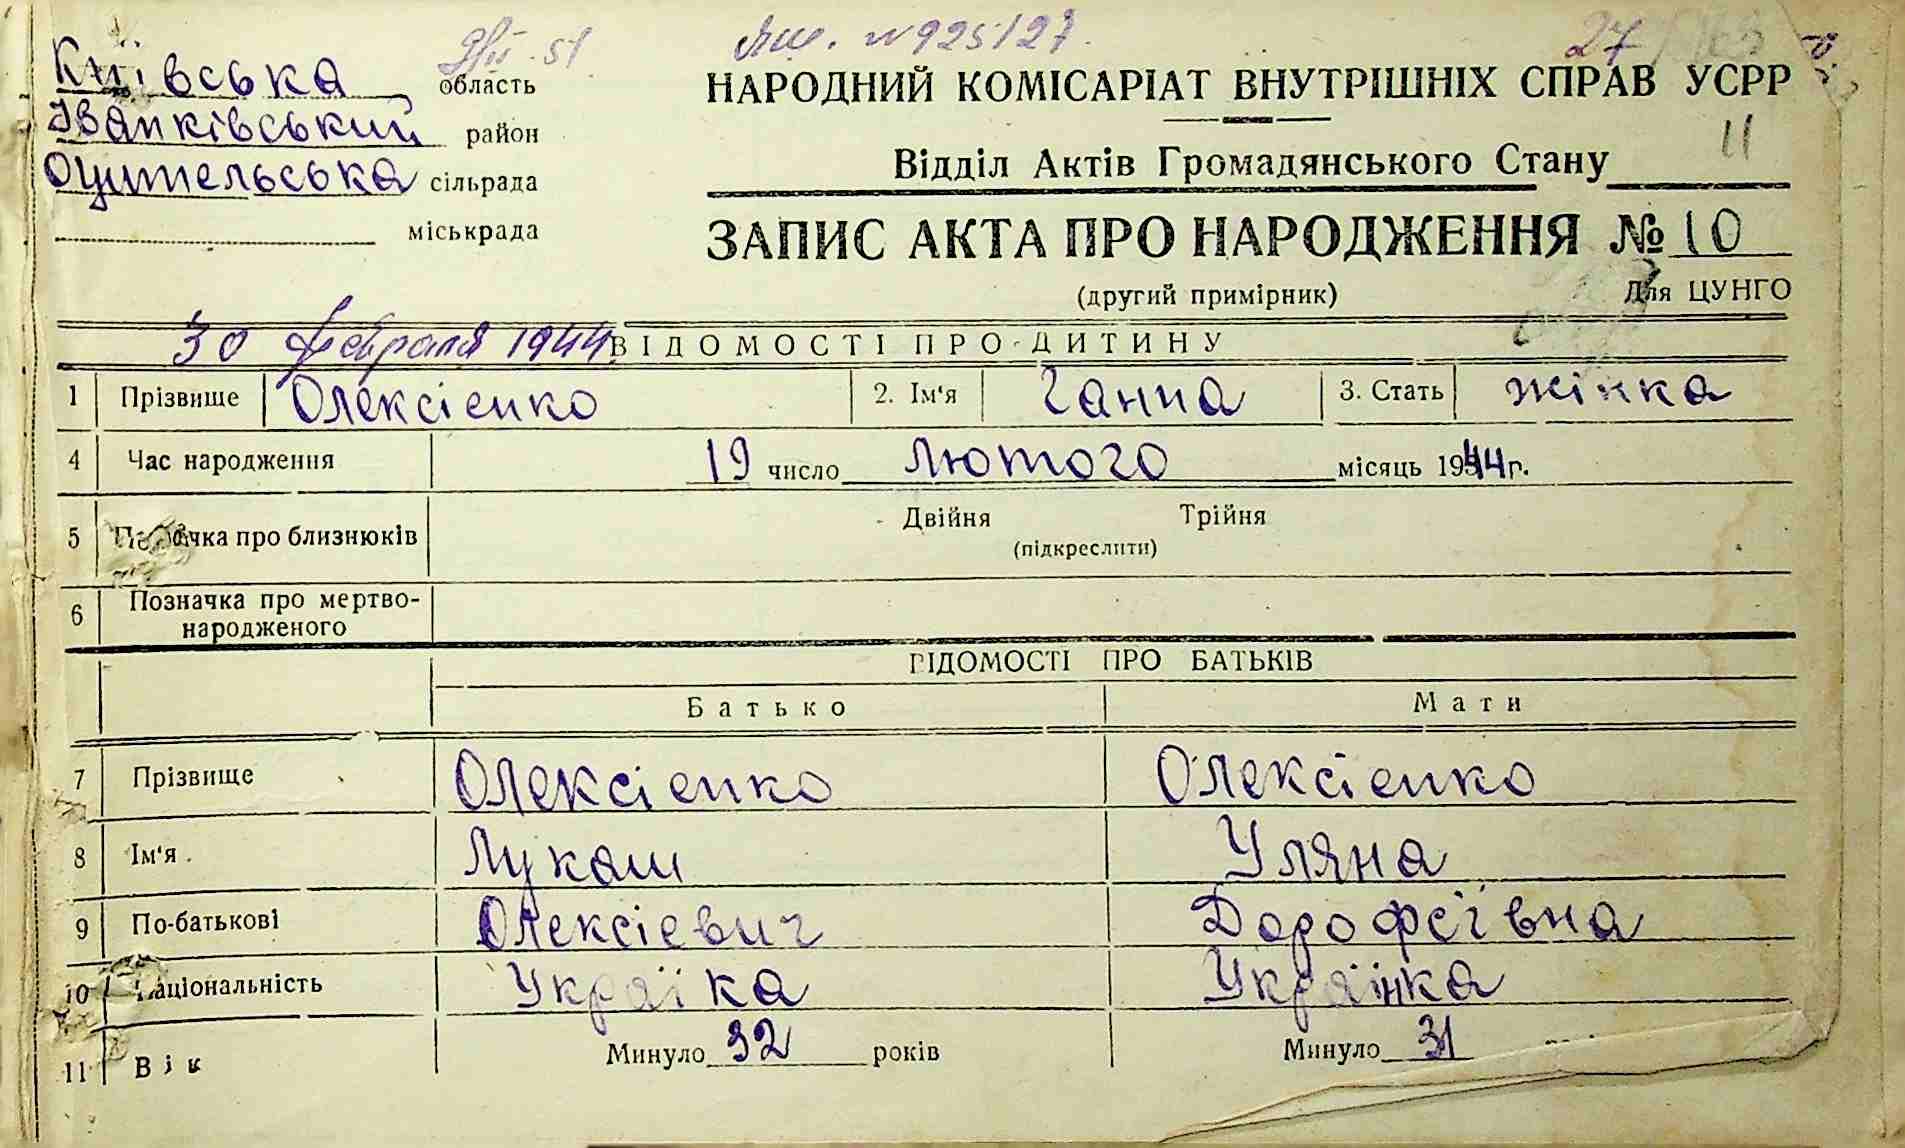 Лш. №925/27
27
Київська область
Іванківський район
Оцительська сільрада
міськрада
НАРОДНИЙ КОМІСАРІАТ ВНУТРІШНІХ СПРАВ УСРР
11
Відділ Актів Громадянського Стану
ЗАПИС АКТА ПРО НАРОДЖЕННЯ № 10
(другий примірник) Для ЦУНГО
30 февраля 1944 ВІДОМОСТІ ПРО ДИТИНУ
1 Прізвище Олексієнко 2. Ім'я Ганна 3. Стать жінка
4 Час народження 19 число Лютого місяць 1944 г.
5 Позначка про близнюків Двійня Трійня
(підкреслити)
6 Позначка про мертво-
народженого
ВІДОМОСТІ ПРО БАТЬКІВ
Батько Мати
7 Прізвище Олексієнко Олексієнко
8 Ім'я Лукаш Уляна
9 По-батькові Олексієвич Дорофєївна
10 Національність Україка Українка
11 Вік Минуло 32 років Минуло 31